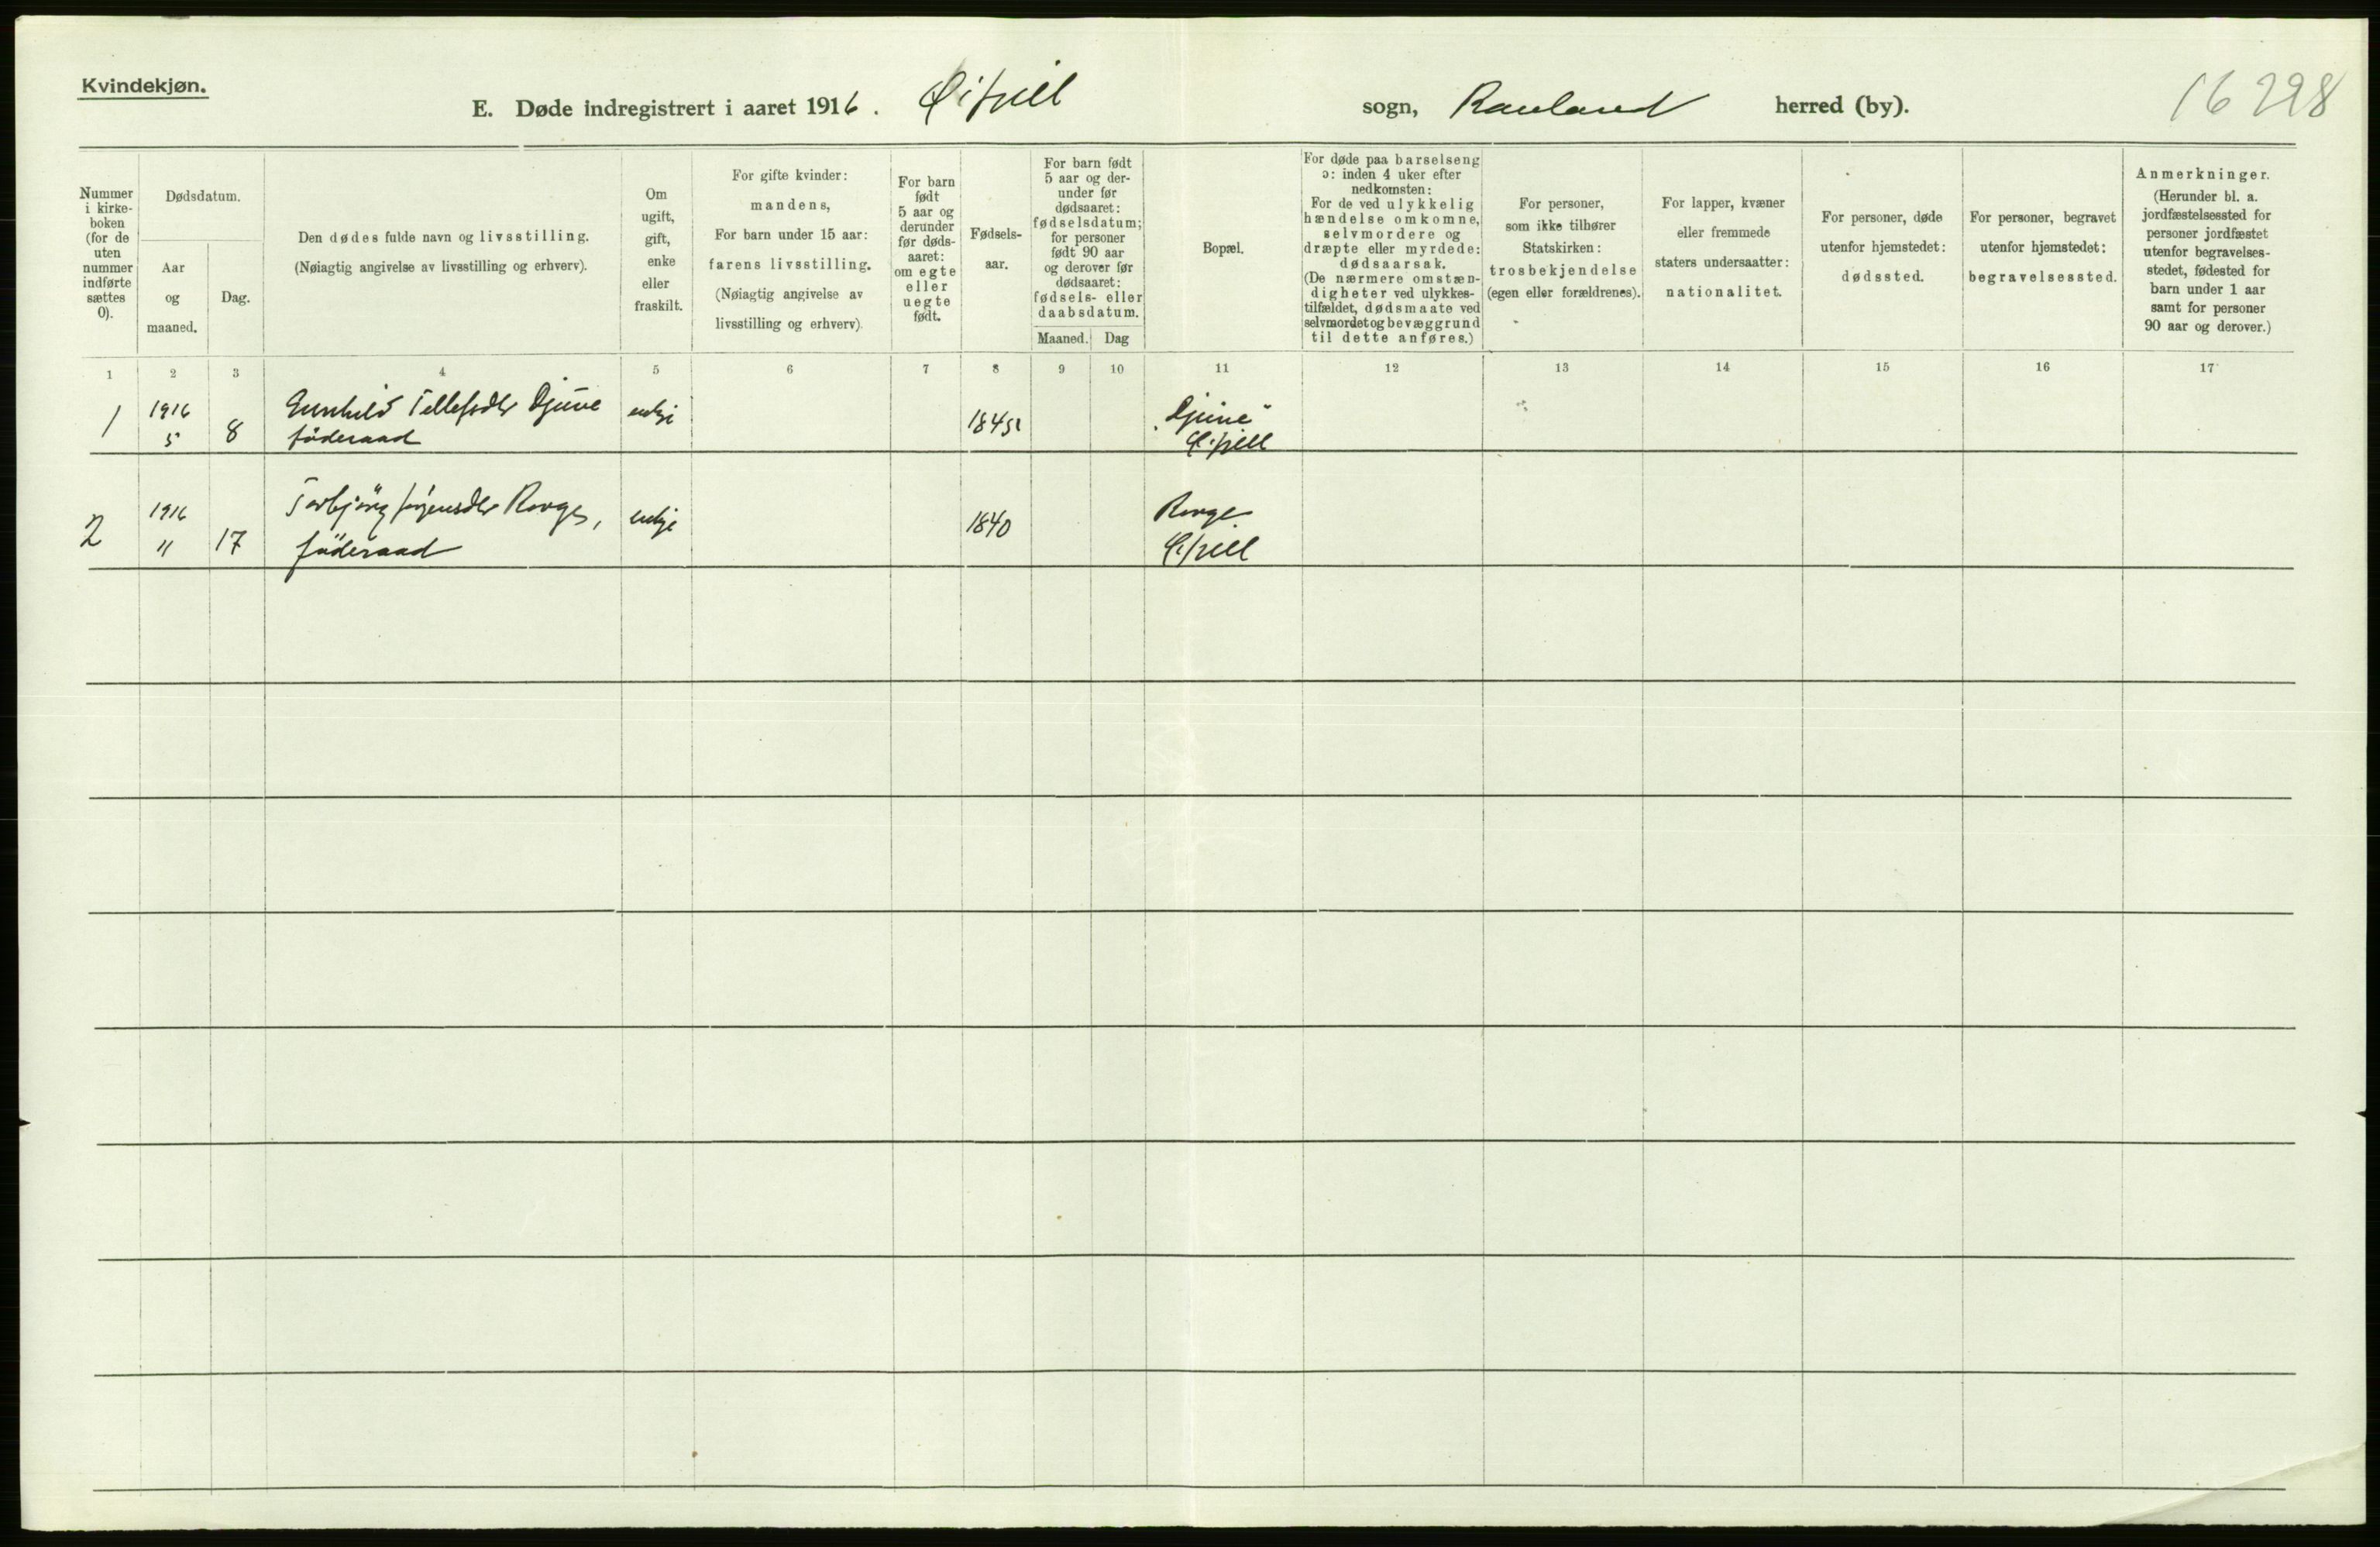 Kvindekjøn.
E. Døde indregistrert i aaret 1916. Øifjell sogn, Rauland herred (by).
16 228
Nummer i kirke-boken (for de uten nummer indførte sættes 0).
Dødsdatum.
Aar og maaned.
Dag.
Den dødes fulde navn og livsstilling.
(Nøiagtig angivelse av livsstilling og erhverv).
Om ugift, gift, enke eller fraskilt.
For gifte kvinder: mandens,
For barn under 15 aar: farens livsstilling.
(Nøiagtig angivelse av livsstilling og erhverv).
For barn født 5 aar og derunder før døds-aaret: om egte eller uegte født.
Fødsels-aar.
For barn født 5 aar og der-under før dødsaaret: fødselsdatum; for personer født 90 aar og derover før dødsaaret: fødsels- eller daabsdatum.
Maaned. Dag
Bopæl.
For døde paa barselseng ɔ: inden 4 uker efter nedkomsten:
For de ved ulykkelig hændelse omkomne, selvmordere og dræpte eller myrdede: dødsaarsak.
(De nærmere omstæn-digheter ved ulykkes-tilfældet, dødsmaate ved selvmordet og bevæggrund til dette anføres.)
For personer, som ikke tilhører Statskirken: trosbekjendelse (egen eller forældrenes).
For lapper, kvæner eller fremmede staters undersaatter: nationalitet.
For personer, døde utenfor hjemstedet: dødssted.
For personer, begravet utenfor hjemstedet: begravelsessted.
Anmerkninger.
(Herunder bl. a. jordfæstelsessted for personer jordfæstet utenfor begravelses-stedet, fødested for barn under 1 aar samt for personer 90 aar og derover.)
1 2 3 4 5 6 7 8 9 10 11 12 13 14 15 16 17
1 1916 Gunhild Tellefsdtr Djuve enkje "Djuve"
5 8 föderaad Øifjell
2 1916 Torbjörg Jörgensdtr Rorge, enkje 1840 Rorge
" 17 föderaad Øifjell